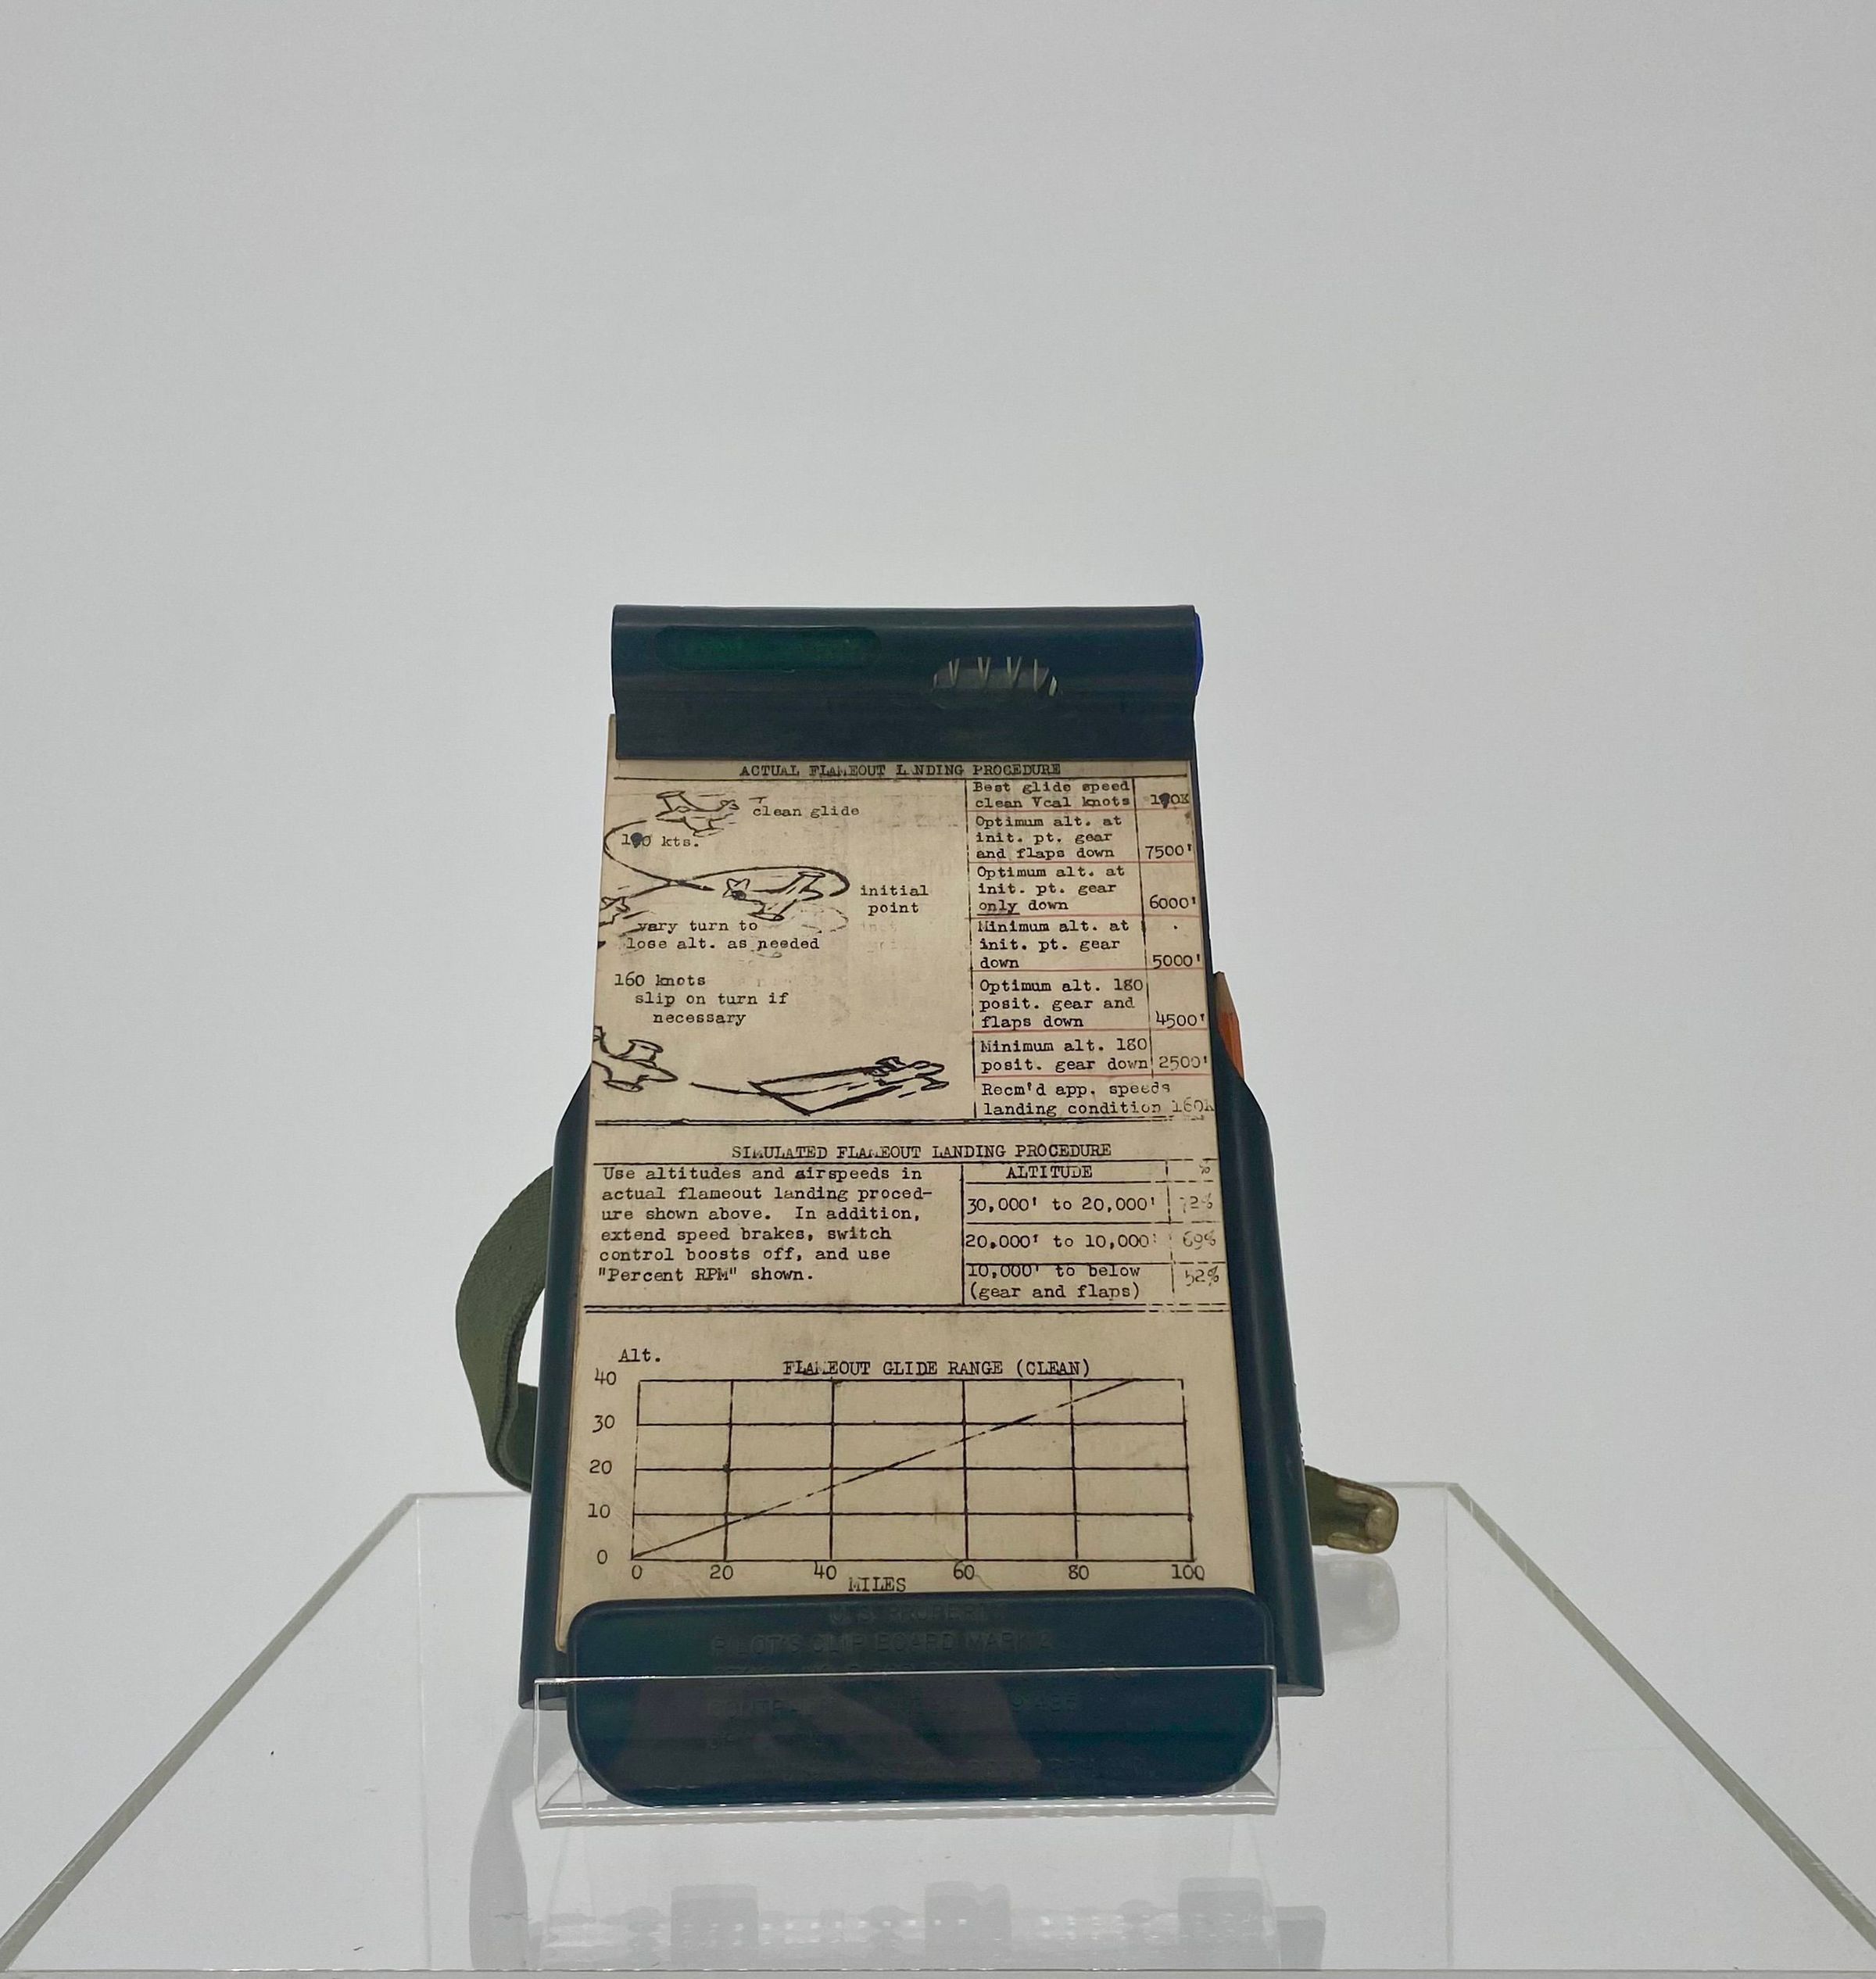 ACTUAL FLAMEOUT LANDING PROCEDURE
clean glide
kts.
initial
point
vary turn to
lose alt. as needed
160 knots
slip on turn if
necessary
Best glide speed
clean Vcal knots
Optimum alt. at
init. pt. gear
and flaps down 7500'
Optimum alt. at
init. pt. gear
only down 6000'
Minimum alt. at
init. pt. gear
down 5000'
Optimum alt. 180
posit. gear and
flaps down 4500'
Minimum alt. 180
posit. gear down 2500'
Recm'd app. speeds
landing condition 160k
SIMULATED FLAMEOUT LANDING PROCEDURE
Use altitudes and airspeeds in
actual flameout landing proced-
ure shown above. In addition,
extend speed brakes, switch
control boosts off, and use
"Percent RPM" shown.
ALTITUDE %
30,000' to 20,000' 72%
20,000' to 10,000' 69%
10,000' to below
(gear and flaps) 52%
Alt.
FLAMEOUT GLIDE RANGE (CLEAN)
40
30
20
10
0
0 20 40 60 80 100
MILES
U.S. PROPERTY
PILOT'S CLIP BOARD